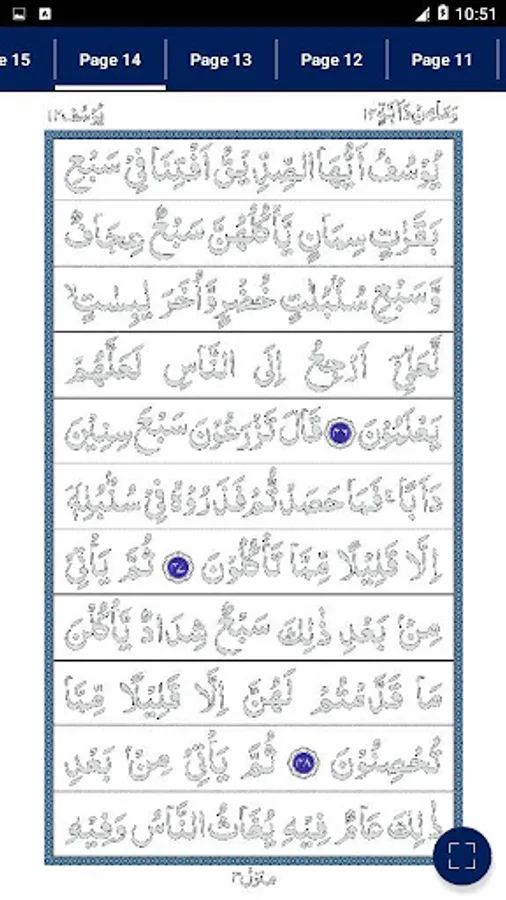 10:51
e 15 Page 14 Page 13 Page 12 Page 11
وَمَا مِنْ دَآبَّةٍ ١٢ يُوْسُف ١٢
يُوْسُفُ اَيُّهَا الصِّدِّيْقُ اَفْتِنَا فِيْ سَبْعِ
بَقَرٰتٍ سِمَانٍ يَّاْكُلُهُنَّ سَبْعٌ عِجَافٌ
وَّسَبْعِ سُنْۢبُلٰتٍ خُضْرٍ وَّاُخَرَ يٰبِسٰتٍ ۙ
لَّعَلِّيْٓ اَرْجِعُ اِلَى النَّاسِ لَعَلَّهُمْ
يَعْلَمُوْنَ ٤٦ قَالَ تَزْرَعُوْنَ سَبْعَ سِنِيْنَ
دَاَبًا ۚ فَمَا حَصَدْتُّمْ فَذَرُوْهُ فِيْ سُنْۢبُلِهٖٓ
اِلَّا قَلِيْلًا مِّمَّا تَاْكُلُوْنَ ٤٧ ثُمَّ يَاْتِيْ
مِنْۢ بَعْدِ ذٰلِكَ سَبْعٌ شِدَادٌ يَّاْكُلْنَ
مَا قَدَّمْتُمْ لَهُنَّ اِلَّا قَلِيْلًا مِّمَّا
تُحْصِنُوْنَ ٤٨ ثُمَّ يَاْتِيْ مِنْۢ بَعْدِ
ذٰلِكَ عَامٌ فِيْهِ يُغَاثُ النَّاسُ وَفِيْهِ
منزل ٣